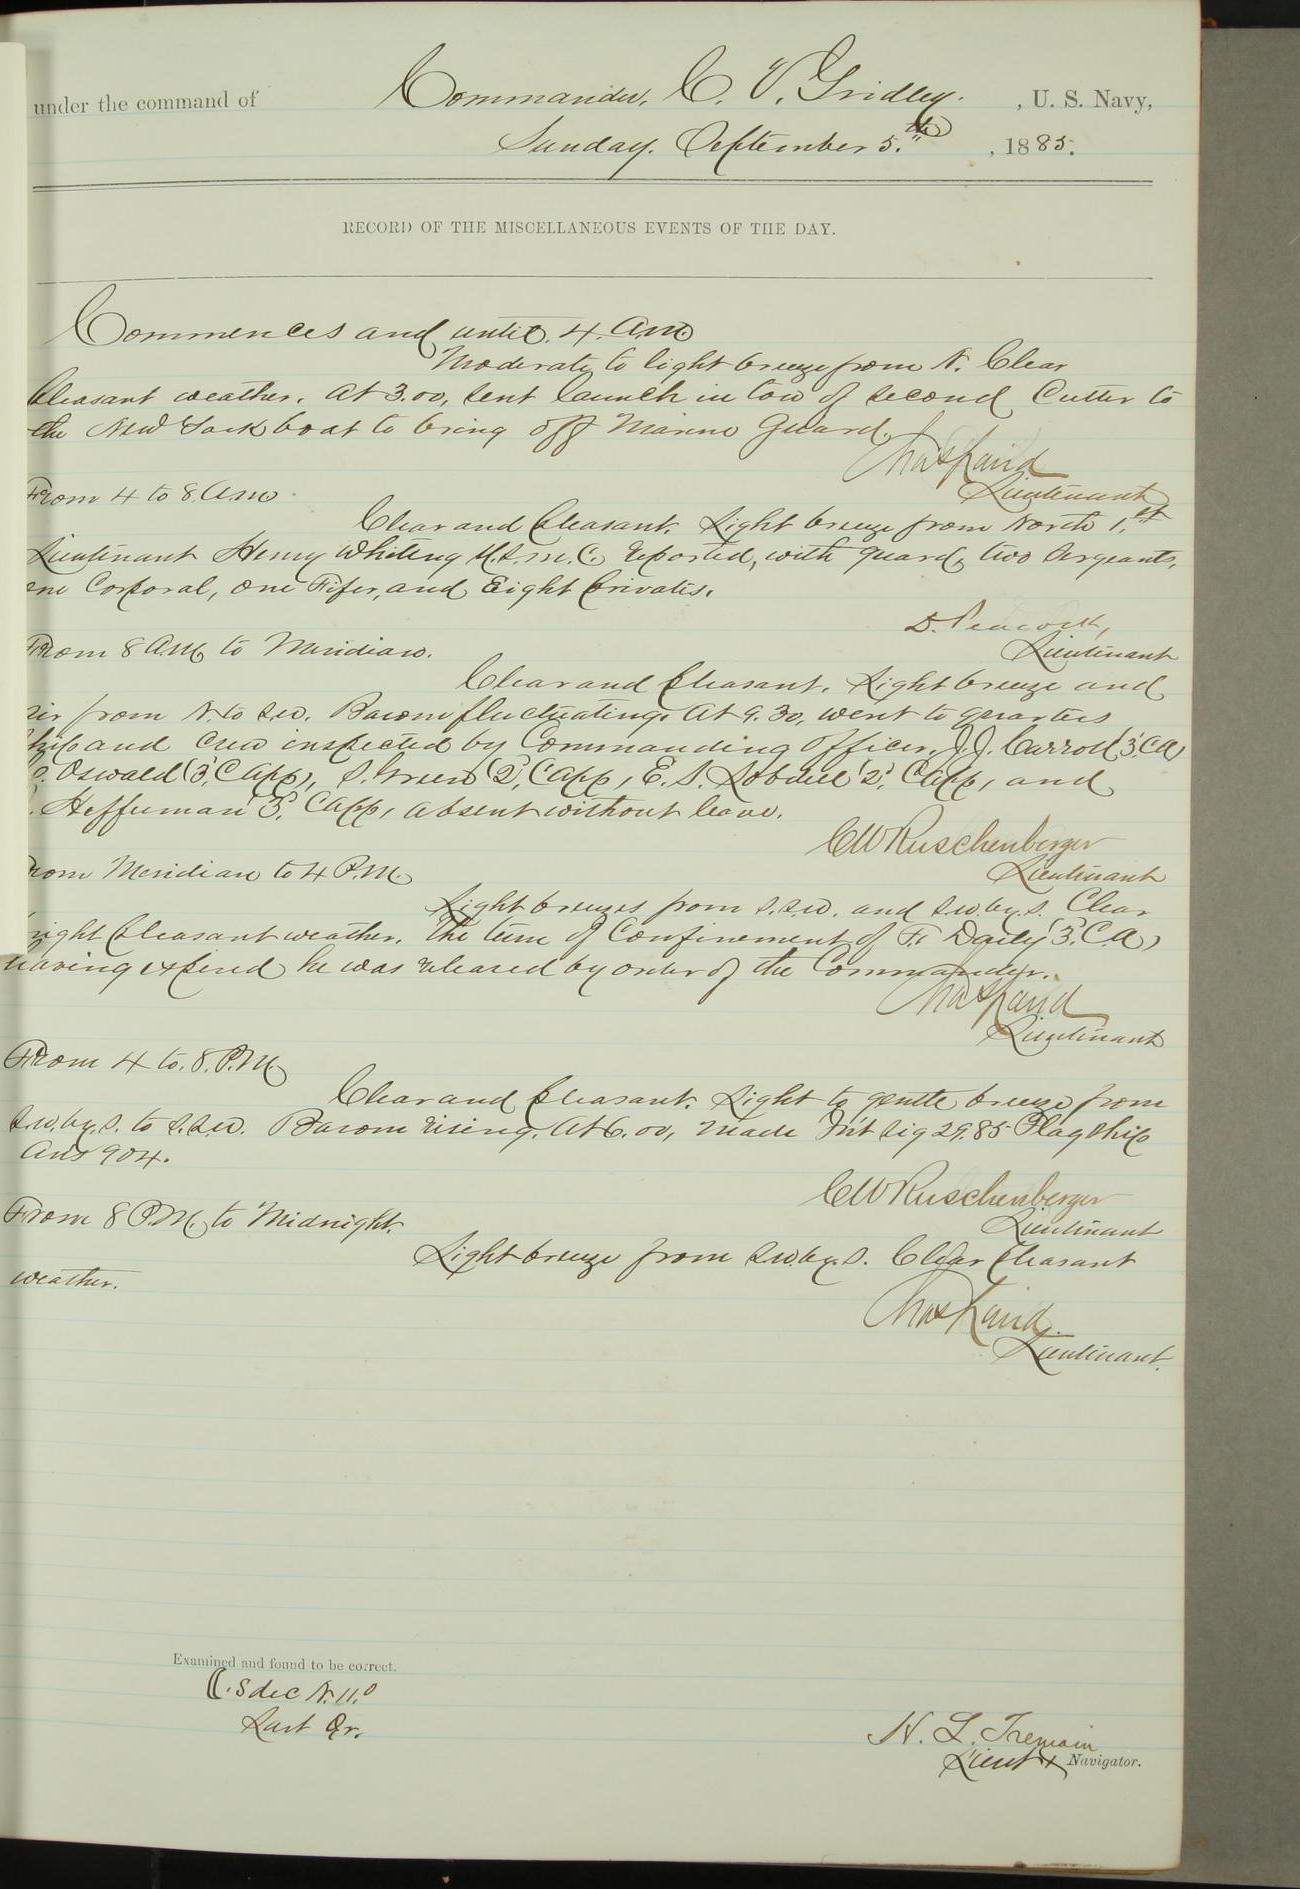 under the command of Commander, C. V. Gridley. , U. S. Navy,
Sunday. September 5.th , 1885.
RECORD OF THE MISCELLANEOUS EVENTS OF THE DAY.
Commences and until. 4. A.M.
Moderate to light breeze from N. Clear
pleasant weather. At 3.00, sent launch in tow of second Cutter to
the New York boat to bring off Marine Guard.
Chas Laird
Lieutenant
From 4 to 8 A.M.
Clear and pleasant. Light breeze from North 1.st
Lieutenant Henry Whiting U.S.M.C. reported, with guard, two Sergeants,
one Corporal, one Fifer, and Eight privates.
D. Peacock,
Lieutenant
From 8 A.M. to Meridian.
Clear and pleasant. Light breeze and
air from N. to S.W. Barom fluctuating. At 9.30, went to quarters
ship and crew inspected by Commanding Officer. J.J. Carroll (3.C.A)
Oswald (3, C App), S. Green (2, C App, E. S. Lobdell (2, C App, and
Heffernan 3, C App, absent without leave.
CW Ruschenberger
Lieutenant
From Meridian to 4 P.M.
Light breezes from S.S.W. and S.W. by. S. Clear
bright pleasant weather. The term of Confinement of F. Daily (3. C. A)
having expired he was released by order of the Commander.
Chas Laird
Lieutenant
From 4 to. 8. P.M.
Clear and pleasant. Light to gentle breeze from
S.W. by. S. to S.S.W. Barom rising. At 6.00, made Int Sig 2985 Flagship
Ans 904.
CW Ruschenberger
Lieutenant
From 8 P.M. to Midnight.
Light breeze from S.W. by. S. Clear pleasant
weather.
Chas Laird.
Lieutenant.
Examined and found to be correct.
☾. S dec N. 11.0
Last Qr.
H. L. Tremain
Lieut + Navigator.